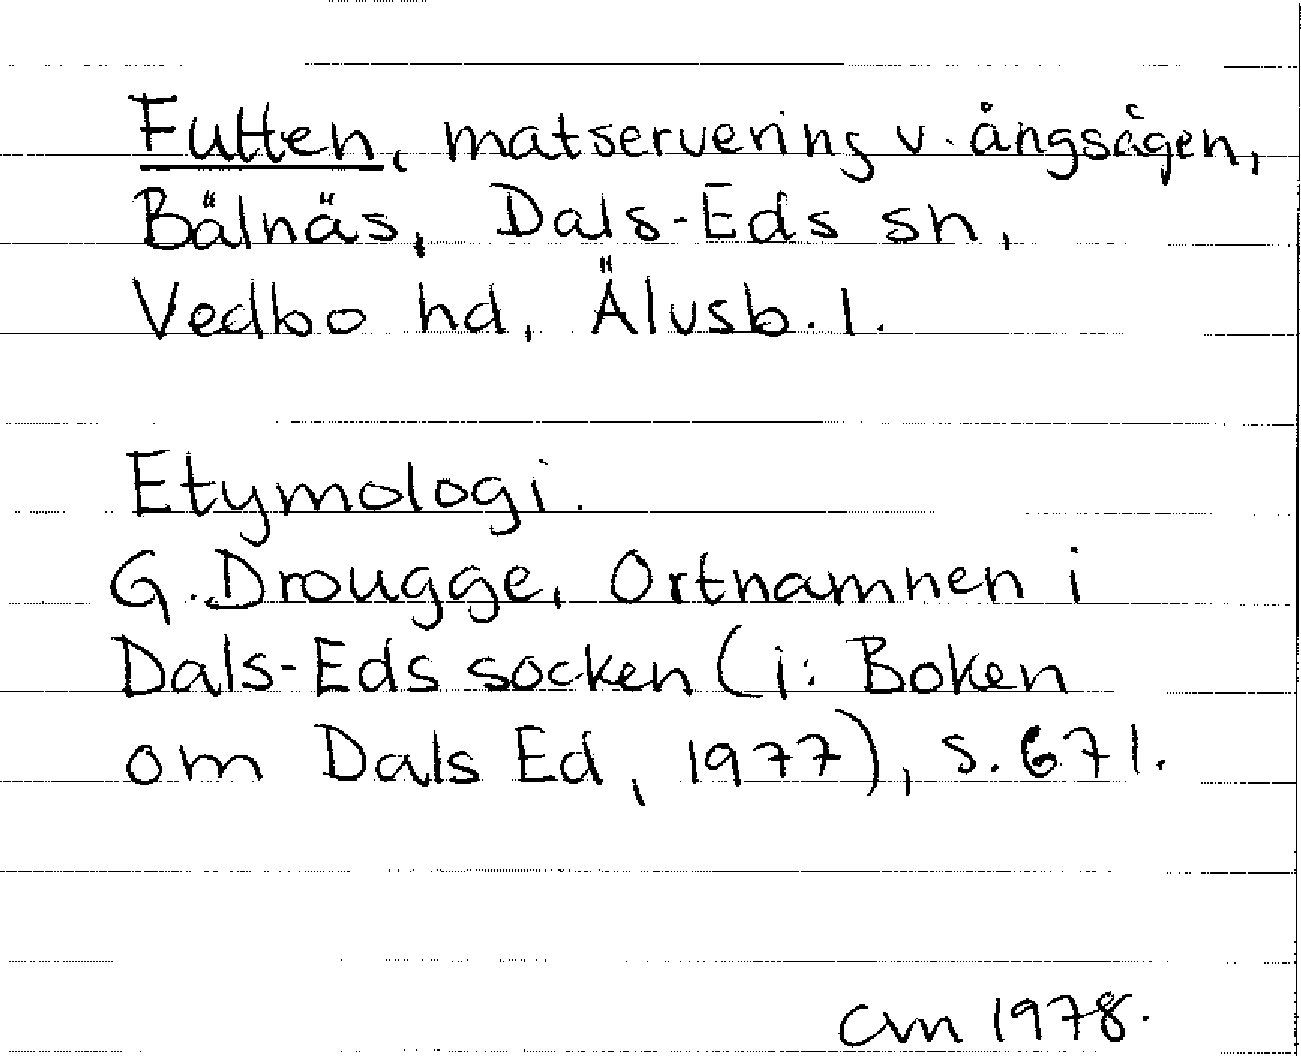 Futten, matservering v. ångsågen,
Bälnäs, Dals-Eds sn,
Vedbo hd, Älvsb. l.
Etymologi.
G. Drougge, Ortnamnen i
Dals-Eds socken (i: Boken
om Dals Ed, 1977), s. 671.
cvn 1978.